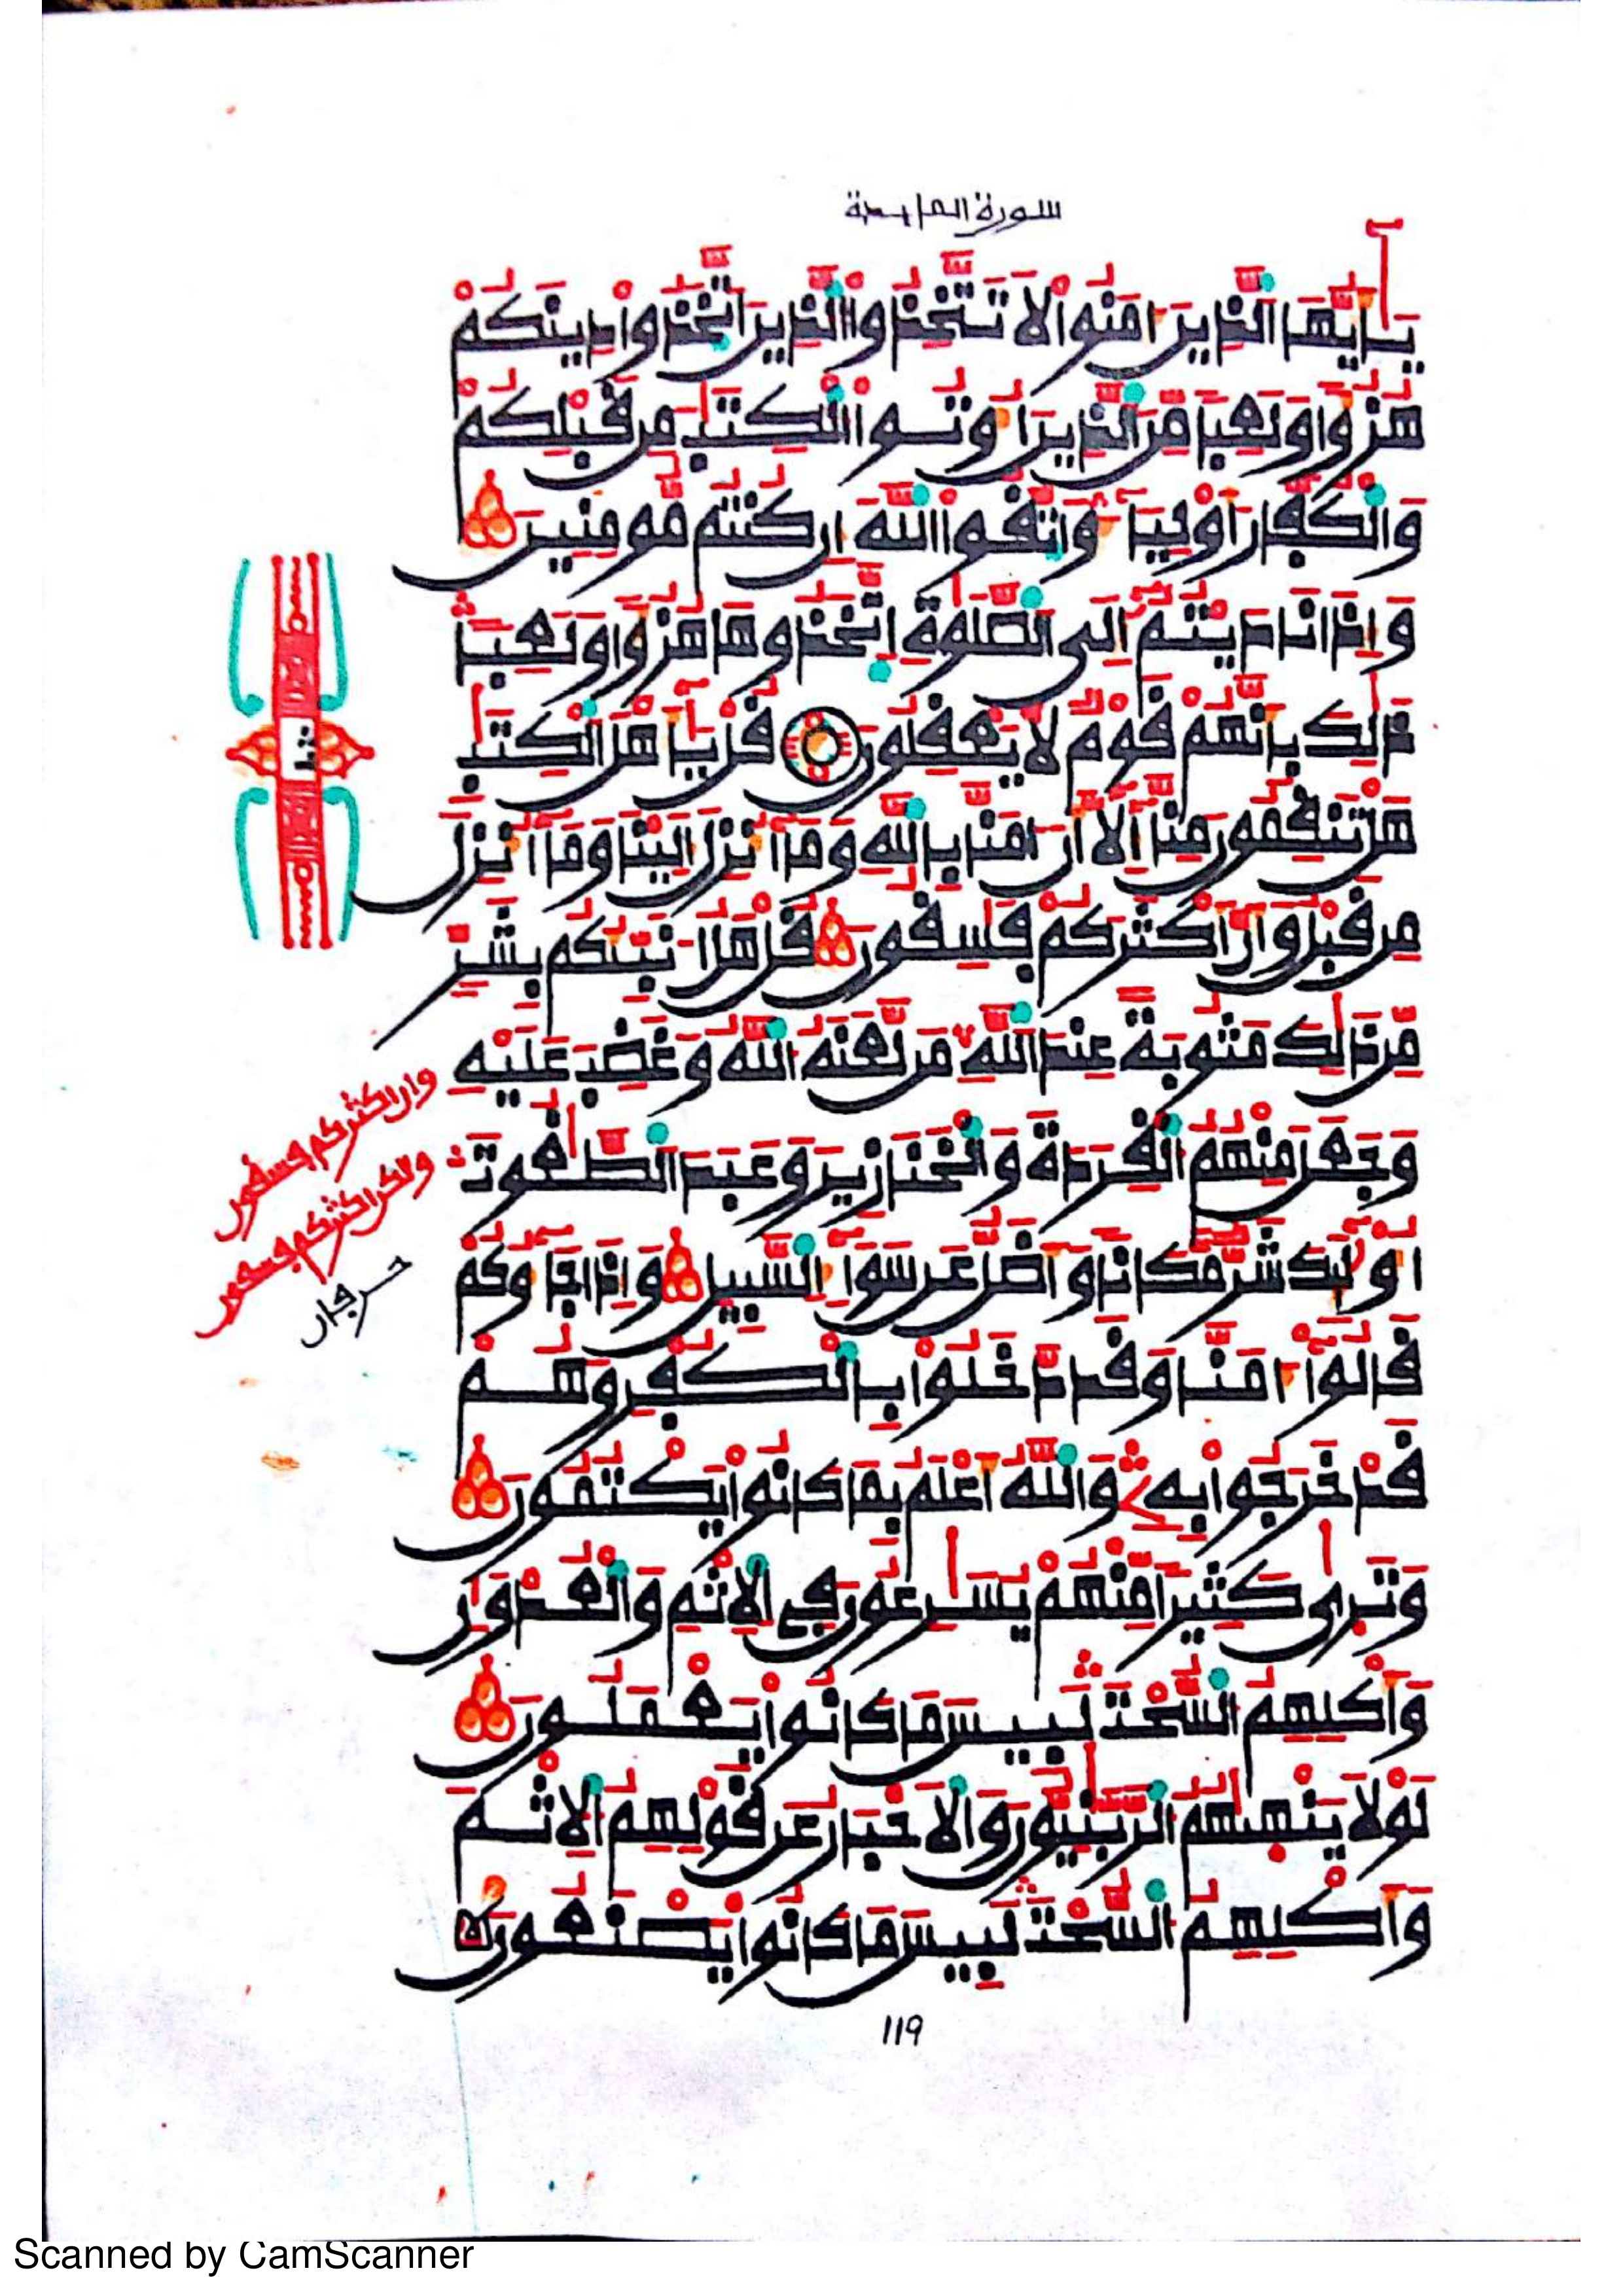 سورة المايدة
يَٰأَيُّهَا ٱلذِينَ ءَامَنُواْ لَا تَتَّخِذُواْ ٱلذِينَ ٱتَّخَذُواْ دِينَكُمْ
هُزُؤاً وَلَعِباً مِّنَ ٱلذِينَ أُوتُواْ ٱلْكِتَٰبَ مِن قَبْلِكُمْ
وَٱلْكُفَّارَ أَوْلِيَآءَ وَٱتَّقُواْ ٱللَّهَ إِن كُنتُم مُّومِنِينَ
وَإِذَا نَادَيْتُمْ إِلَى ٱلصَّلَوٰةِ ٱتَّخَذُوهَا هُزُؤاً وَلَعِباً
ذَٰلِكَ بِأَنَّهُمْ قَوْمٌ لَّا يَعْقِلُونَ قُلْ يَٰأَهْلَ ٱلْكِتَٰبِ
هَلْ تَنقِمُونَ مِنَّا إِلَّا أَنَ ـامَنَّا بِٱللَّهِ وَمَا أُنزِلَ إِلَيْنَا وَمَا أُنزِلَ
مِن قَبْلُ وَأَنَّ أَكْثَرَكُمْ فَٰسِقُونَ قُلْ هَلُ ا۟نَبِّئُكُم بِشَرٍّ
مِّن ذَٰلِكَ مَثُوبَةً عِندَ ٱللَّهِ مَن لَّعَنَهُ ٱللَّهُ وَغَضِبَ عَلَيْهِ
وَجَعَلَ مِنْهُمُ ٱلْقِرَدَةَ وَٱلْخَنَازِيرَ وَعَبَدَ ٱلطَّٰغُوتَ
أُوْلَٰئِكَ شَرٌّ مَّكَاناً وَأَضَلُّ عَن سَوَآءِ ٱلسَّبِيلِ وَإِذَا جَآءُوكُمْ
قَالُواْ ءَامَنَّا وَقَد دَّخَلُواْ بِٱلْكُفْرِ وَهُمْ
قَدْ خَرَجُواْ بِهِۦ وَٱللَّهُ أَعْلَمُ بِمَا كَانُواْ يَكْتُمُونَ
وَتَرَىٰ كَثِيراً مِّنْهُمْ يُسَٰرِعُونَ فِي ٱلْإِثْمِ وَٱلْعُدْوَٰنِ
وَأَكْلِهِمُ ٱلسُّحْتَ لَبِيسَ مَا كَانُواْ يَعْمَلُونَ
لَوْلَا يَنْهَيٰهُمُ ٱلرَّبَّٰنِيُّونَ وَٱلْأَحْبَارُ عَن قَوْلِهِمُ ٱلْإِثْمَ
وَأَكْلِهِمُ ٱلسُّحْتَ لَبِيسَ مَا كَانُواْ يَصْنَعُونَ
وان اكثركم فسقون
ولكن اكثركم فسقون
119
Scanned by CamScanner